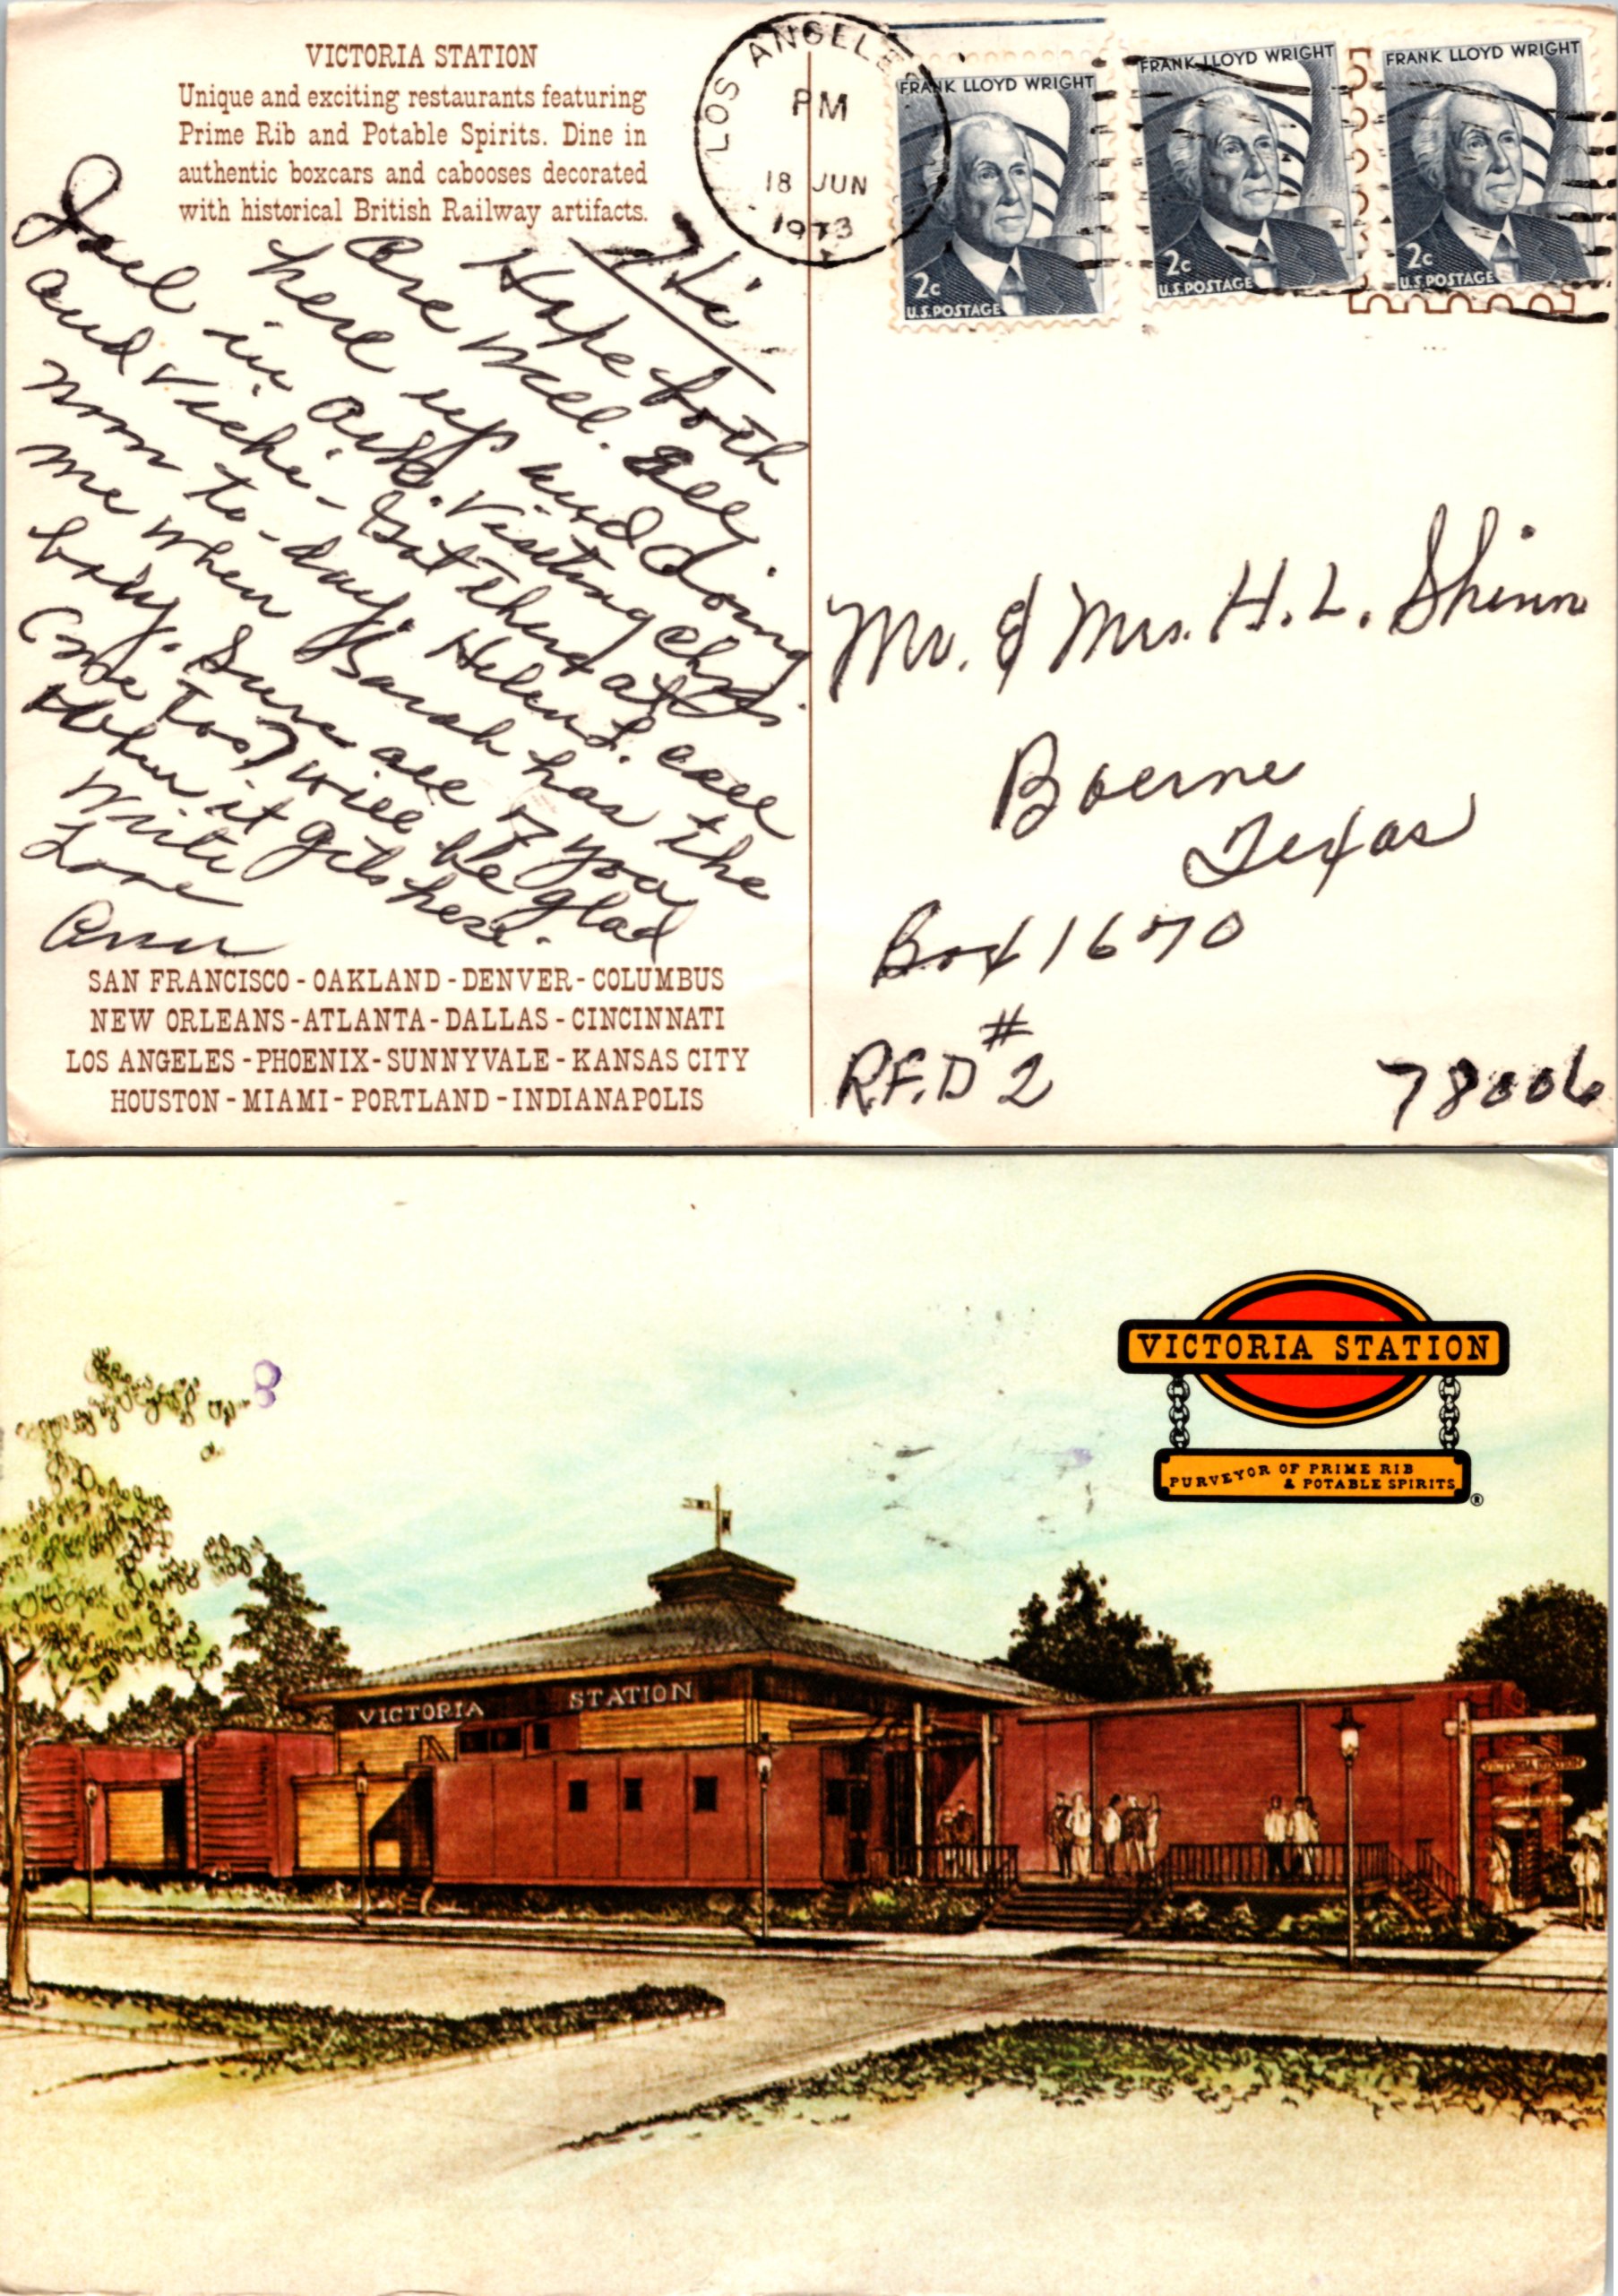 VICTORIA STATION
Unique and exciting restaurants featuring
Prime Rib and Potable Spirits. Dine in
authentic boxcars and cabooses decorated
with historical British Railway artifacts.
Hi
Hope both
are well. All
here up and doing
Joel in Ark. Visiting Chris
and Vicki - Got there at
noon to-day. Helen L. call
me when Sarah has the
baby. Sure all of you
(me too) will be glad
when it gets here.
Write
Love
Ann
SAN FRANCISCO - OAKLAND - DENVER - COLUMBUS
NEW ORLEANS - ATLANTA - DALLAS - CINCINNATI
LOS ANGELES - PHOENIX - SUNNYVALE - KANSAS CITY
HOUSTON - MIAMI - PORTLAND - INDIANAPOLIS
LOS ANGELES
PM
18 JUN
1973
FRANK LLOYD WRIGHT
2c
U.S. POSTAGE
FRANK LLOYD WRIGHT
2c
U.S. POSTAGE
FRANK LLOYD WRIGHT
2c
U.S. POSTAGE
Mr. & Mrs. H. L. Shinn
Boerne
Texas
Box 1670
R.F.D # 2
78006
VICTORIA STATION
PURVEYOR OF PRIME RIB
& POTABLE SPIRITS
®
VICTORIA STATION
VICTORIA STATION